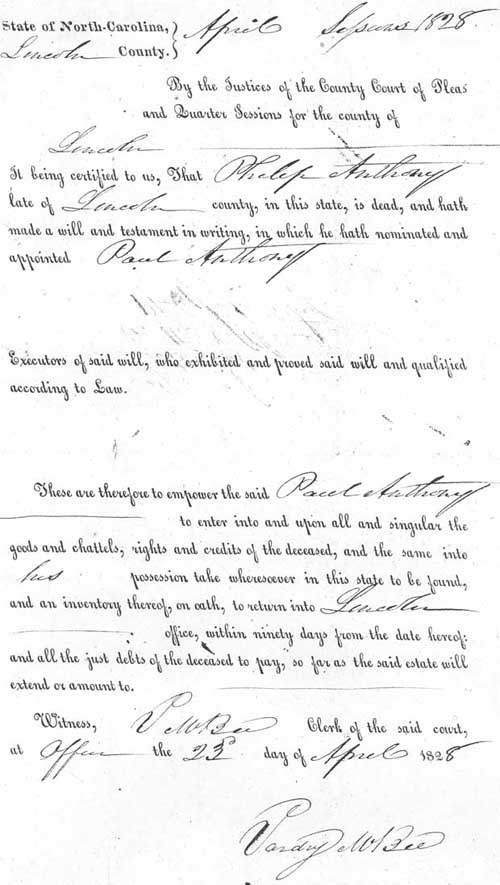 State of North-Carolina,) April Sessions 1828
Lincoln County.)
By the Justices of the County Court of Pleas
and Quarter Sessions for the county of
Lincoln
It being certified to us, That Philip Anthony
late of Lincoln county, in this state, is dead, and hath
made a will and testament in writing, in which he hath nominated and
appointed Paul Anthony
Executors of said will, who exhibited and proved said will and qualified
according to Law.
These are therefore to empower the said Paul Anthony
to enter into and upon all and singular the
goods and chattels, rights and credits of the deceased, and the same into
his possession take wheresoever in this state to be found,
and an inventory thereof, on oath, to return into Lincoln
office, within ninety days from the date hereof:
and all the just debts of the deceased to pay, so far as the said estate will
extend or amount to.
Witness, V McBee Clerk of the said court,
at Office the 23d day of April 1828
Vardry McBee